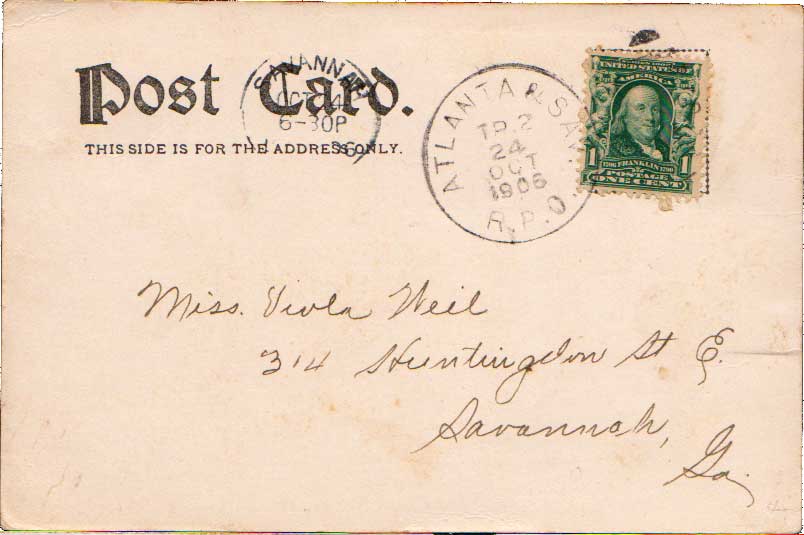 Post Card.
THIS SIDE IS FOR THE ADDRESS ONLY.
SAVANNAH
OCT 24
6-30P
06
ATLANTA & SAV.
TR. 2
24
OCT
1906
R.P.O.
SERIES 1902
UNITED STATES OF
AMERICA
1 1
1706 FRANKLIN 1790
POSTAGE
ONE CENT
Miss. Viola Weil
314 Huntingdon St E.
Savannah,
Ga.